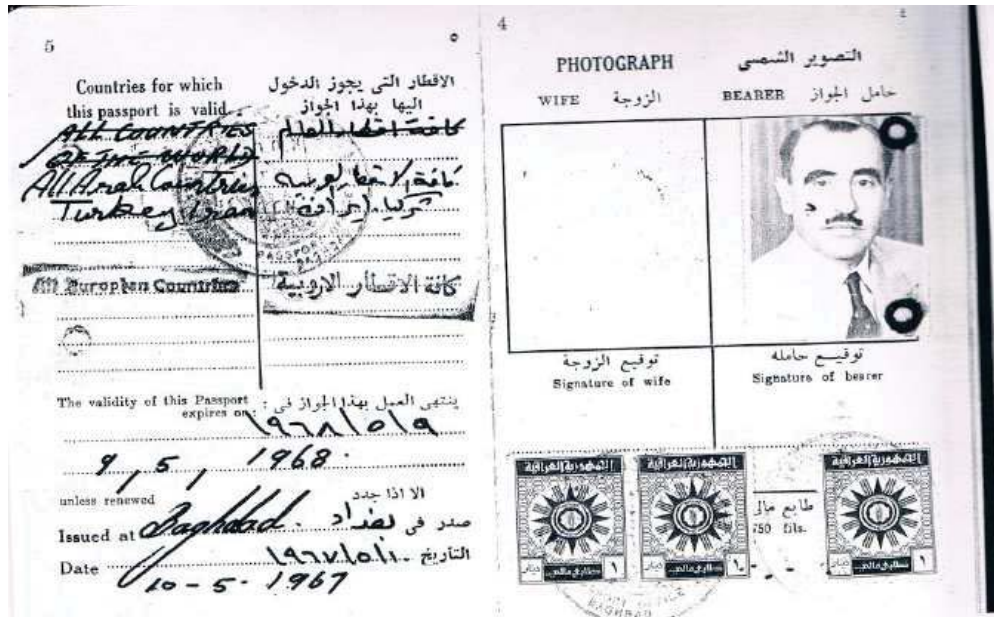 5
٥
Countries for which
this passport is valid.
الاقطار التى يجوز الدخول
اليها بهذا الجواز
ALL COUNTRIES
OF THE WORLD
كافة اقطار العالم
All Arab Countries
Turkey Iran
كافة الاقطار العربيه
تركيا ايران
PASSPOR
All Europien Countries
كافة الاقطار الاروبية
The validity of this Passport
expires on
ينتهى العمل بهذا الجواز فى :
١٩٦٨/٥/٩
9, 5, 1968.
unless renewed
الا اذا جدد
Issued at Baghdad.
صدر فى بغداد
Date
التاريخ
١٩٦٧/٥/١٠
10-5-1967
4
٤
PHOTOGRAPH
التصوير الشمسى
WIFE
الزوجة
BEARER
حامل الجواز
توقيع الزوجة
Signature of wife
توقيع حامله
Signature of bearer
الجمهورية العراقية
الجمهورية العراقية
الجمهورية العراقية
طابع مالى
750 fils.
دينار
١
دينار
١
دينار
١
OFFICE
BAGHDAD